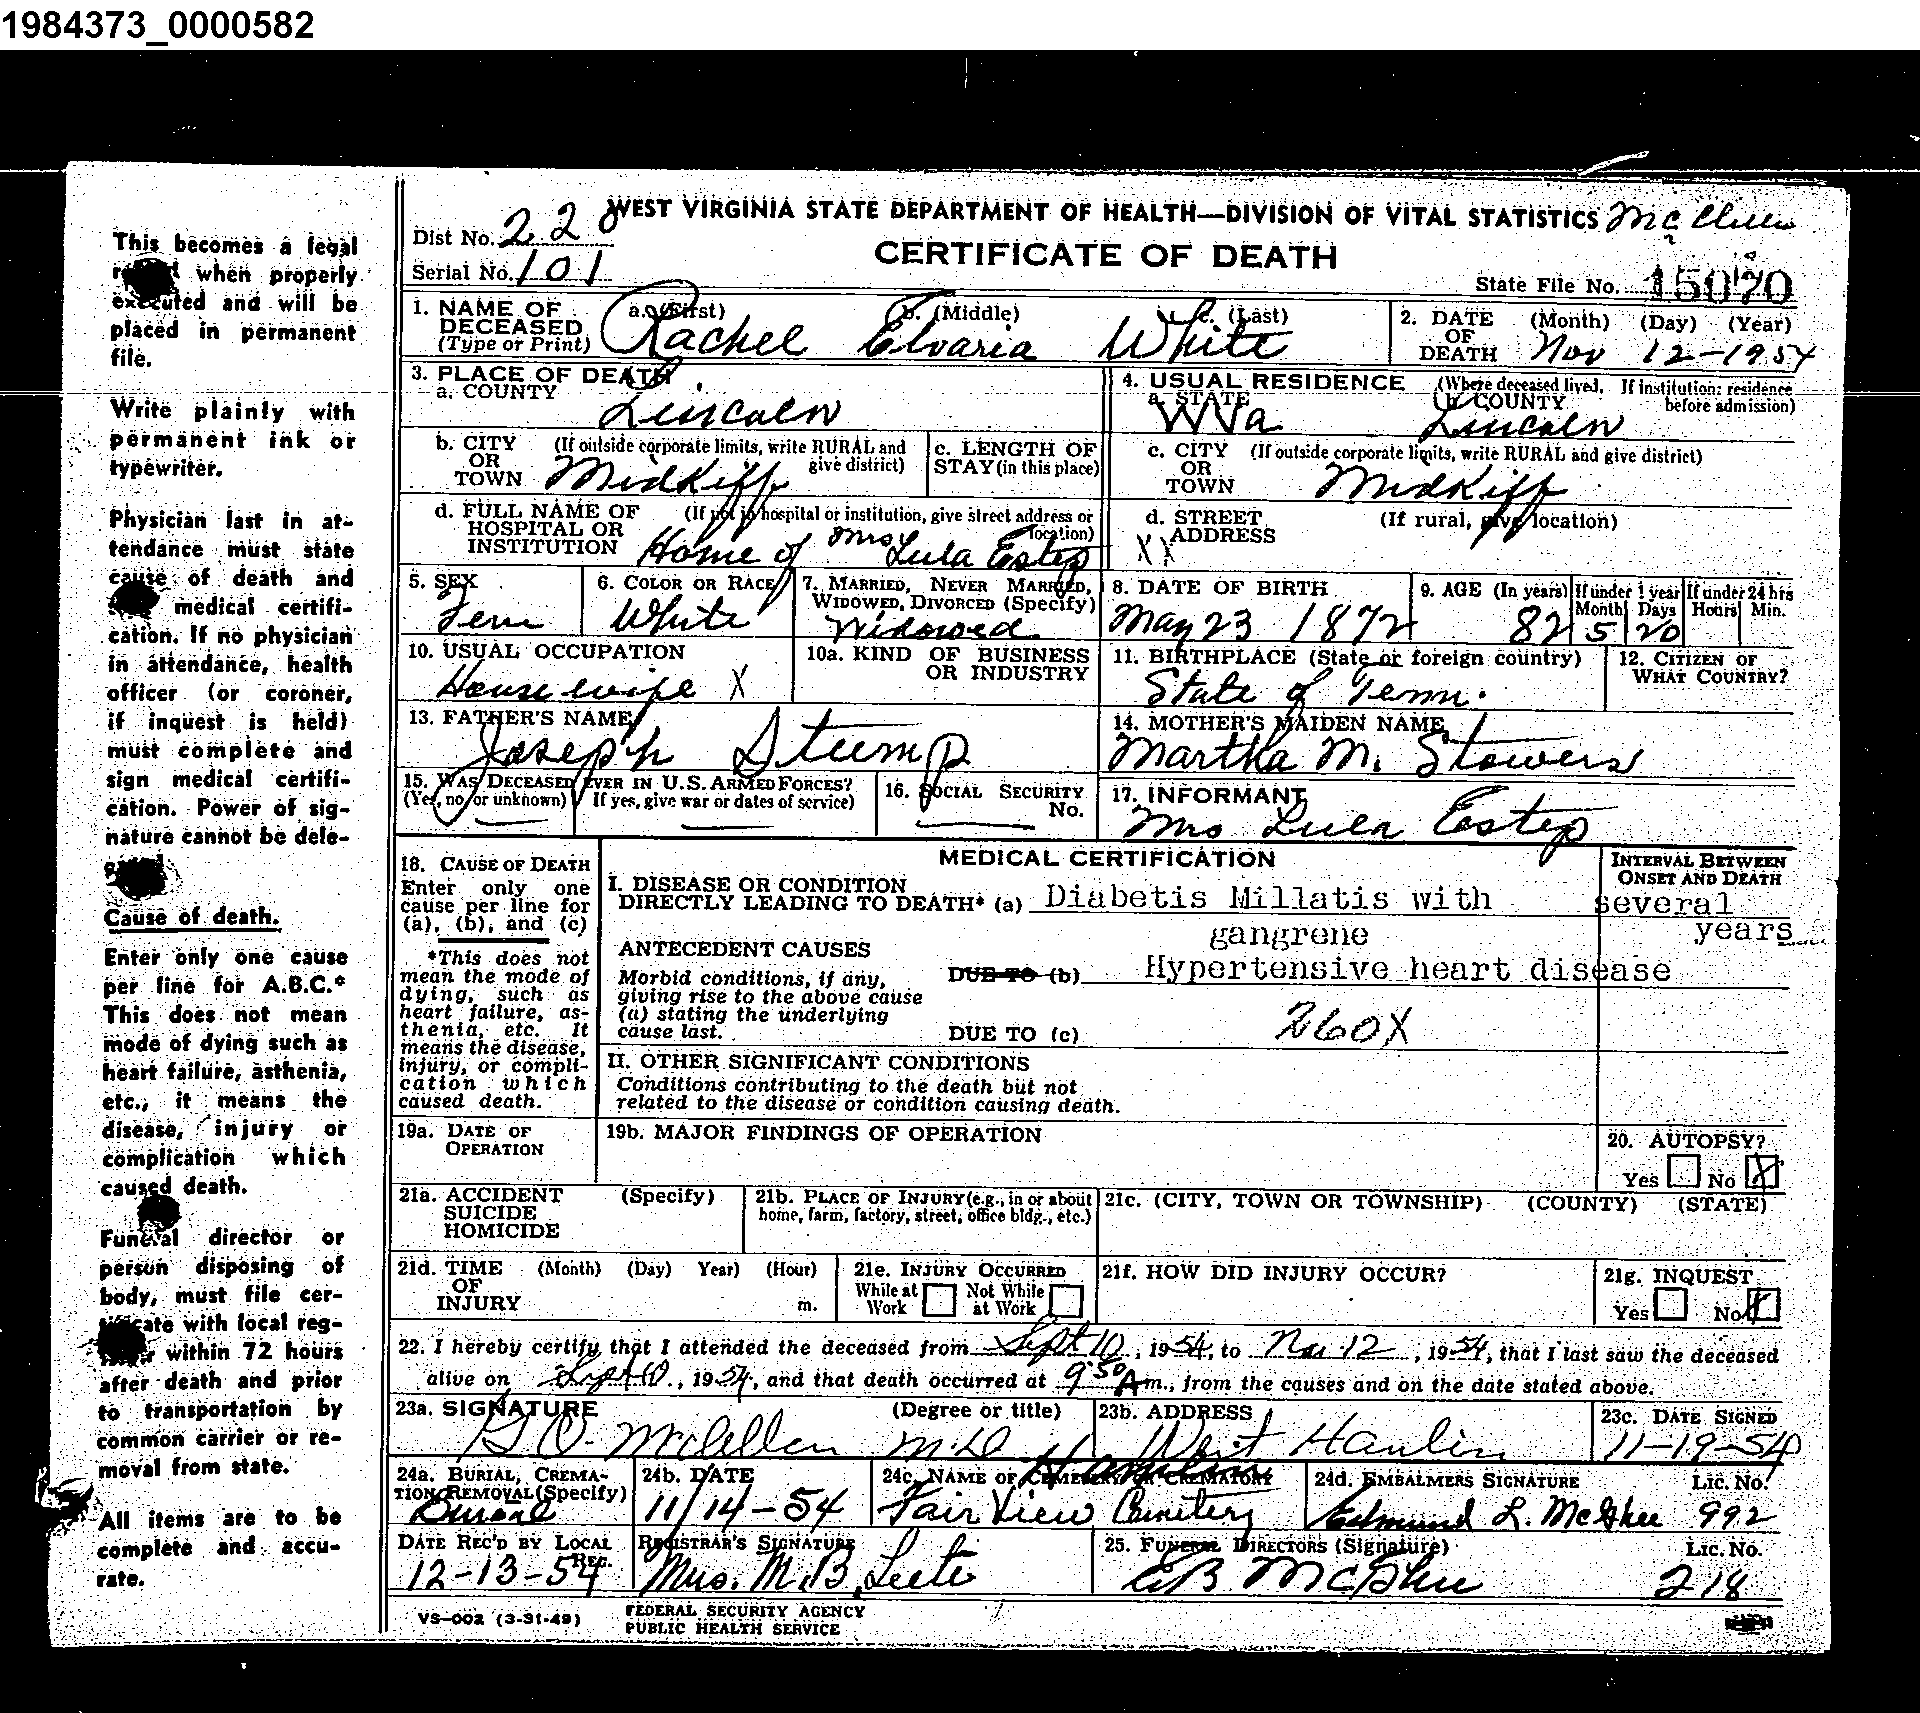 1984373_0000582
This becomes a legal
when properly
executed and will be
placed in permanent
file.
Write plainly with
permanent ink or
typewriter.
Physician last in at-
tendance must state
cause of death and
medical certifi-
cation. If no physician
in attendance, health
officer (or coroner,
if inquest is held)
must complete and
sign medical certifi-
cation. Power of sig-
nature cannot be dele-
Cause of death.
Enter only one cause
per line for A.B.C.*
This does not mean
mode of dying such as
heart failure, asthenia,
etc., it means the
disease, injury or
complication which
caused death.
Funeral director or
person disposing of
body, must file cer-
tificate with local reg-
within 72 hours
after death and prior
to transportation by
common carrier or re-
moval from state.
All items are to be
complete and accu-
rate.
WEST VIRGINIA STATE DEPARTMENT OF HEALTH—DIVISION OF VITAL STATISTICS
Dist No. 220
CERTIFICATE OF DEATH
Serial No. 101
State File No. 15070
1. NAME OF DECEASED (Type or Print) a. (First) b. (Middle) c. (Last)
Rachel Elvaria White
2. DATE OF DEATH (Month) (Day) (Year)
Nov 12-1954
3. PLACE OF DEATH
a. COUNTY
Lincoln
4. USUAL RESIDENCE (Where deceased lived. If institution: residence before admission)
a. STATE b. COUNTY
WVa Lincoln
b. CITY OR TOWN (If outside corporate limits, write RURAL and give district)
Midkiff
c. LENGTH OF STAY (in this place)
c. CITY OR TOWN (If outside corporate limits, write RURAL and give district)
Midkiff
d. FULL NAME OF HOSPITAL OR INSTITUTION (If not in hospital or institution, give street address or location)
Home of Mrs Lula Estep
d. STREET ADDRESS (If rural, give location)
XX
5. SEX
Fem
6. COLOR OR RACE
White
7. MARRIED, NEVER MARRIED, WIDOWED, DIVORCED (Specify)
Widowed
8. DATE OF BIRTH
May 23 1872
9. AGE (In years) If under 1 year Month Days If under 24 hrs Hours Min.
82 5 20
10. USUAL OCCUPATION
Housewife X
10a. KIND OF BUSINESS OR INDUSTRY
11. BIRTHPLACE (State or foreign country)
State of Tenn.
12. CITIZEN OF WHAT COUNTRY?
13. FATHER'S NAME
Joseph Stump
14. MOTHER'S MAIDEN NAME
Martha M. Stowers
15. WAS DECEASED EVER IN U.S. ARMED FORCES?
(Yes, no, or unknown) If yes, give war or dates of service)
16. SOCIAL SECURITY No.
17. INFORMANT
Mrs Lula Estep
18. CAUSE OF DEATH
Enter only one
cause per line for
(a), (b), and (c)
*This does not
mean the mode of
dying, such as
heart failure, as-
thenia, etc. It
means the disease,
injury, or compli-
cation which
caused death.
MEDICAL CERTIFICATION
INTERVAL BETWEEN ONSET AND DEATH
I. DISEASE OR CONDITION
DIRECTLY LEADING TO DEATH* (a) Diabetis Millatis with several
gangrene years
ANTECEDENT CAUSES
Morbid conditions, if any,
giving rise to the above cause
(a) stating the underlying
cause last.
DUE TO (b) Hypertensive heart disease
DUE TO (c) 260X
II. OTHER SIGNIFICANT CONDITIONS
Conditions contributing to the death but not
related to the disease or condition causing death.
19a. DATE OF OPERATION
19b. MAJOR FINDINGS OF OPERATION
20. AUTOPSY?
Yes No X
21a. ACCIDENT SUICIDE HOMICIDE (Specify)
21b. PLACE OF INJURY (e.g., in or about home, farm, factory, street, office bldg., etc.)
21c. (CITY, TOWN OR TOWNSHIP) (COUNTY) (STATE)
21d. TIME OF INJURY (Month) (Day) Year) (Hour) m.
21e. INJURY OCCURRED
While at Work Not While at Work
21f. HOW DID INJURY OCCUR?
21g. INQUEST
Yes No X
22. I hereby certify that I attended the deceased from Sept 10, 1954, to Nov. 12, 1954, that I last saw the deceased
alive on Sept 10, 1954, and that death occurred at 9:50 Am., from the causes and on the date stated above.
23a. SIGNATURE (Degree or title)
M.D.
23b. ADDRESS
West Hamlin
Hamlin
23c. DATE SIGNED
11-19-54
24a. BURIAL, CREMATION REMOVAL (Specify)
Burial
24b. DATE
11/14-54
24c. NAME OF CEMETERY OR CREMATORY
Fair View Cemetery
24d. EMBALMERS SIGNATURE Lic. No.
Edmund L. McGhee 992
DATE REC'D BY LOCAL REG.
12-13-54
REGISTRAR'S SIGNATURE
Mrs. M. B. Leete
25. FUNERAL DIRECTORS (Signature) Lic. No.
EB McGhee 218
VS-002 (3-31-49)
FEDERAL SECURITY AGENCY
PUBLIC HEALTH SERVICE